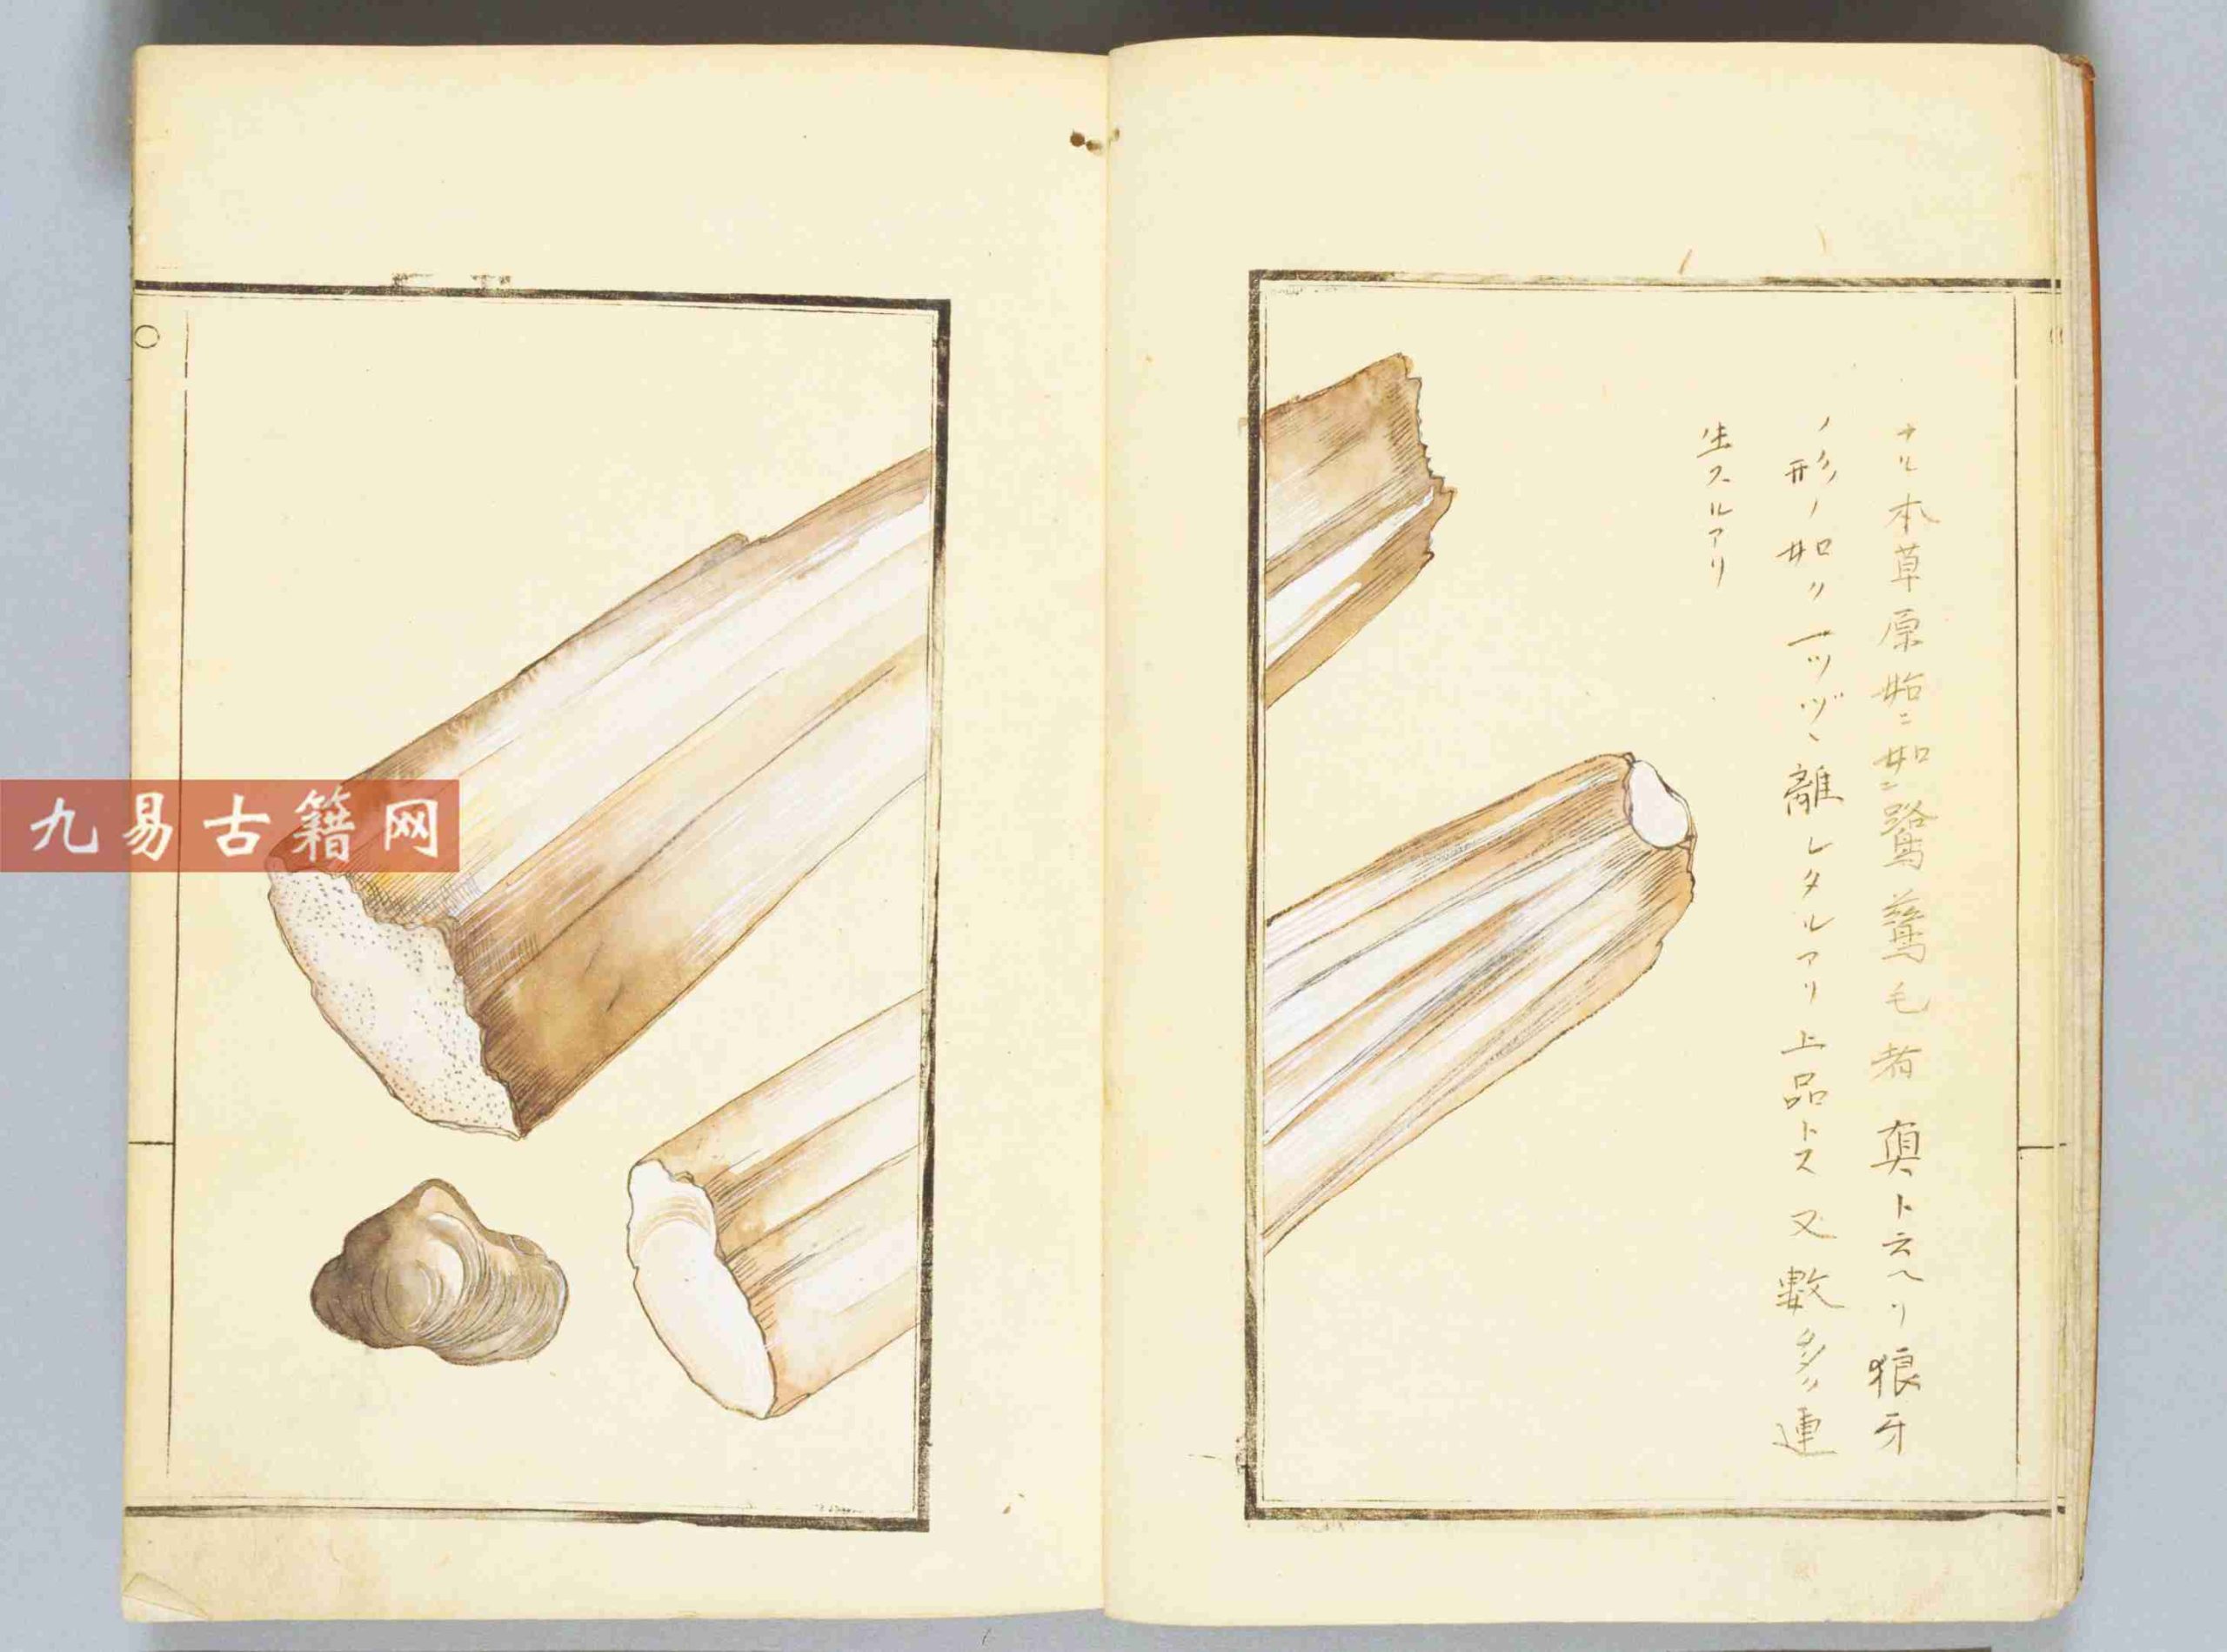 ナル本草原始ニ如ニ鷺鷥毛者眞ト云ヘリ狼牙
ノ形ノ如ク一ツヅヽ離レタルアリ上品トス又數多ク連
生スルアリ
九易古籍网